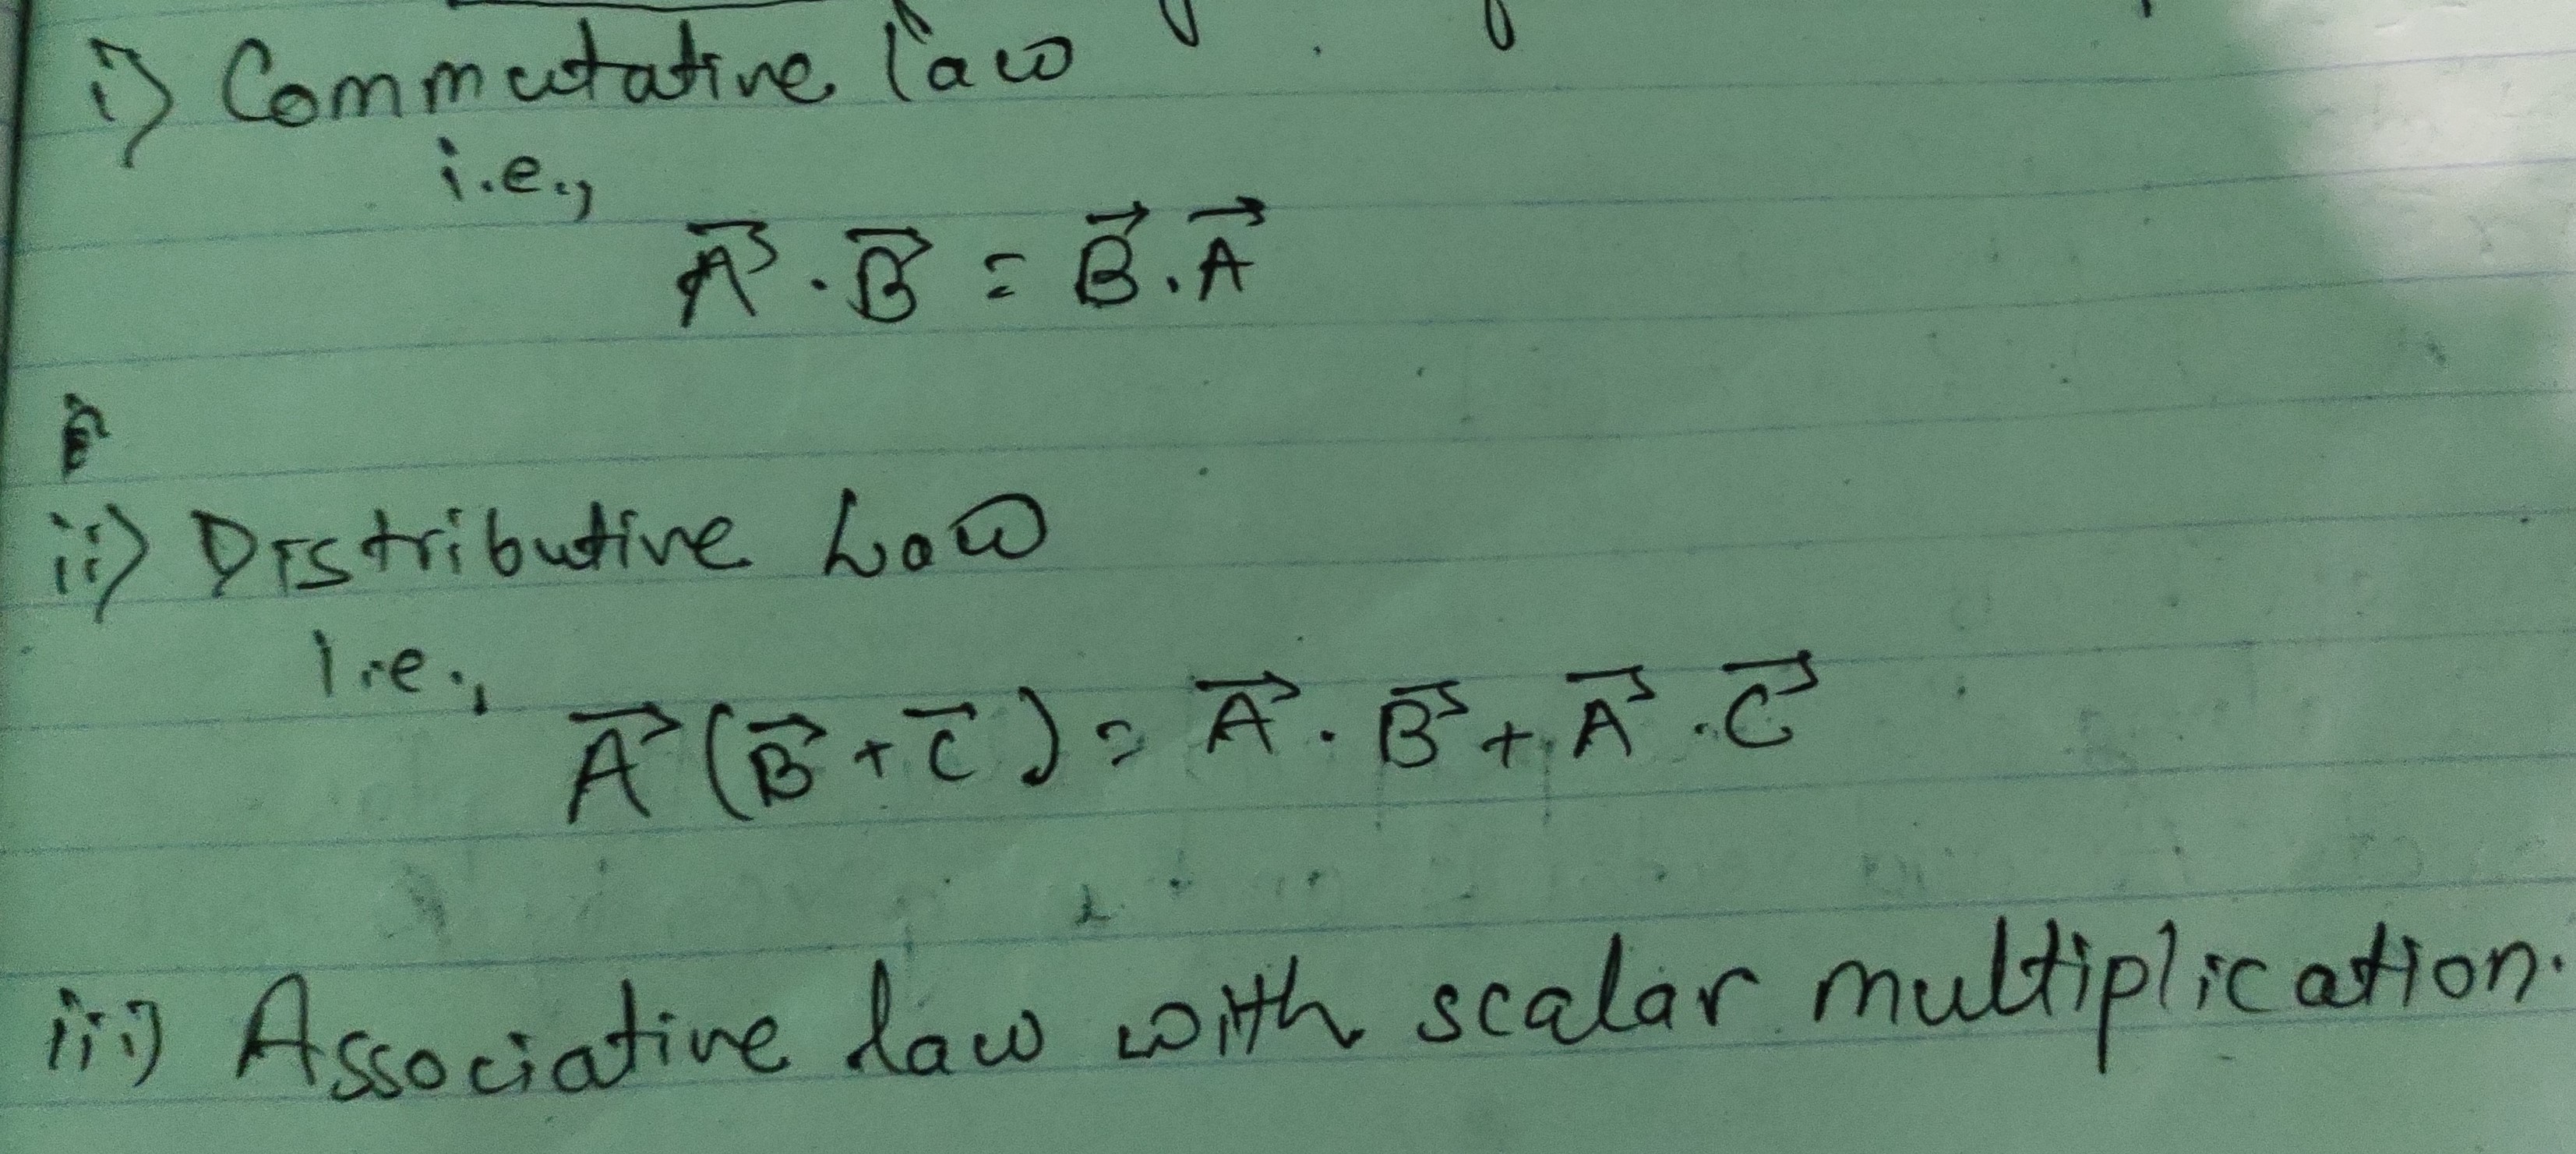 i) Commutative law
i.e.,
A⃗ . B⃗ = B⃗ . A⃗
ii) Distributive Law
i.e.,
A⃗ (B⃗ + C⃗) = A⃗ . B⃗ + A⃗ . C⃗
iii) Associative law with scalar multiplication.